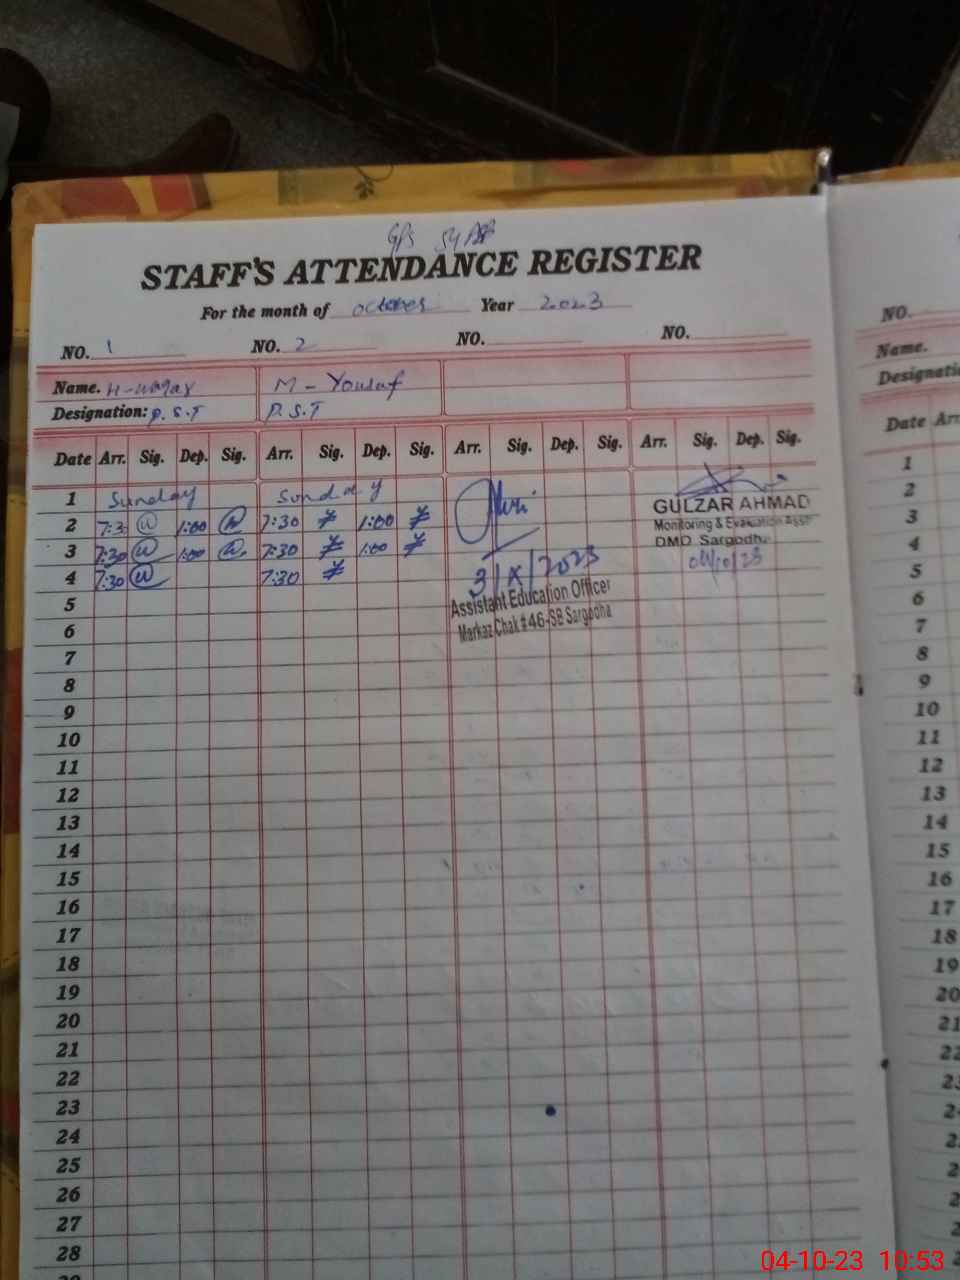 GPS 54
STAFF'S ATTENDANCE REGISTER
For the month of october Year 2023
NO. 1 NO. 2 NO. NO.
Name. H-waqas M - Yousaf
Designation: P.S.T P.S.T
Date Arr. Sig. Dep. Sig. Arr. Sig. Dep. Sig. Arr. Sig. Dep. Sig. Arr. Sig. Dep. Sig.
1 Sunday Sunday
2 7:3 1:00 7:30 1:00
3 7:30 1:00 7:30 1:00
4 7:30 7:30
5
6
7
8
9
10
11
12
13
14
15
16
17
18
19
20
21
22
23
24
25
26
27
28
3/X/2023
Assistant Education Officer
Markaz Chak #46-SB Sargodha
GULZAR AHMAD
Monitoring & Evaluation Asstt
DMO Sargodha
04/10/23
NO.
Name.
Designatio
Date Arr
1
2
3
4
5
6
7
8
9
10
11
12
13
14
15
16
17
18
19
20
21
22
04-10-23 10:53